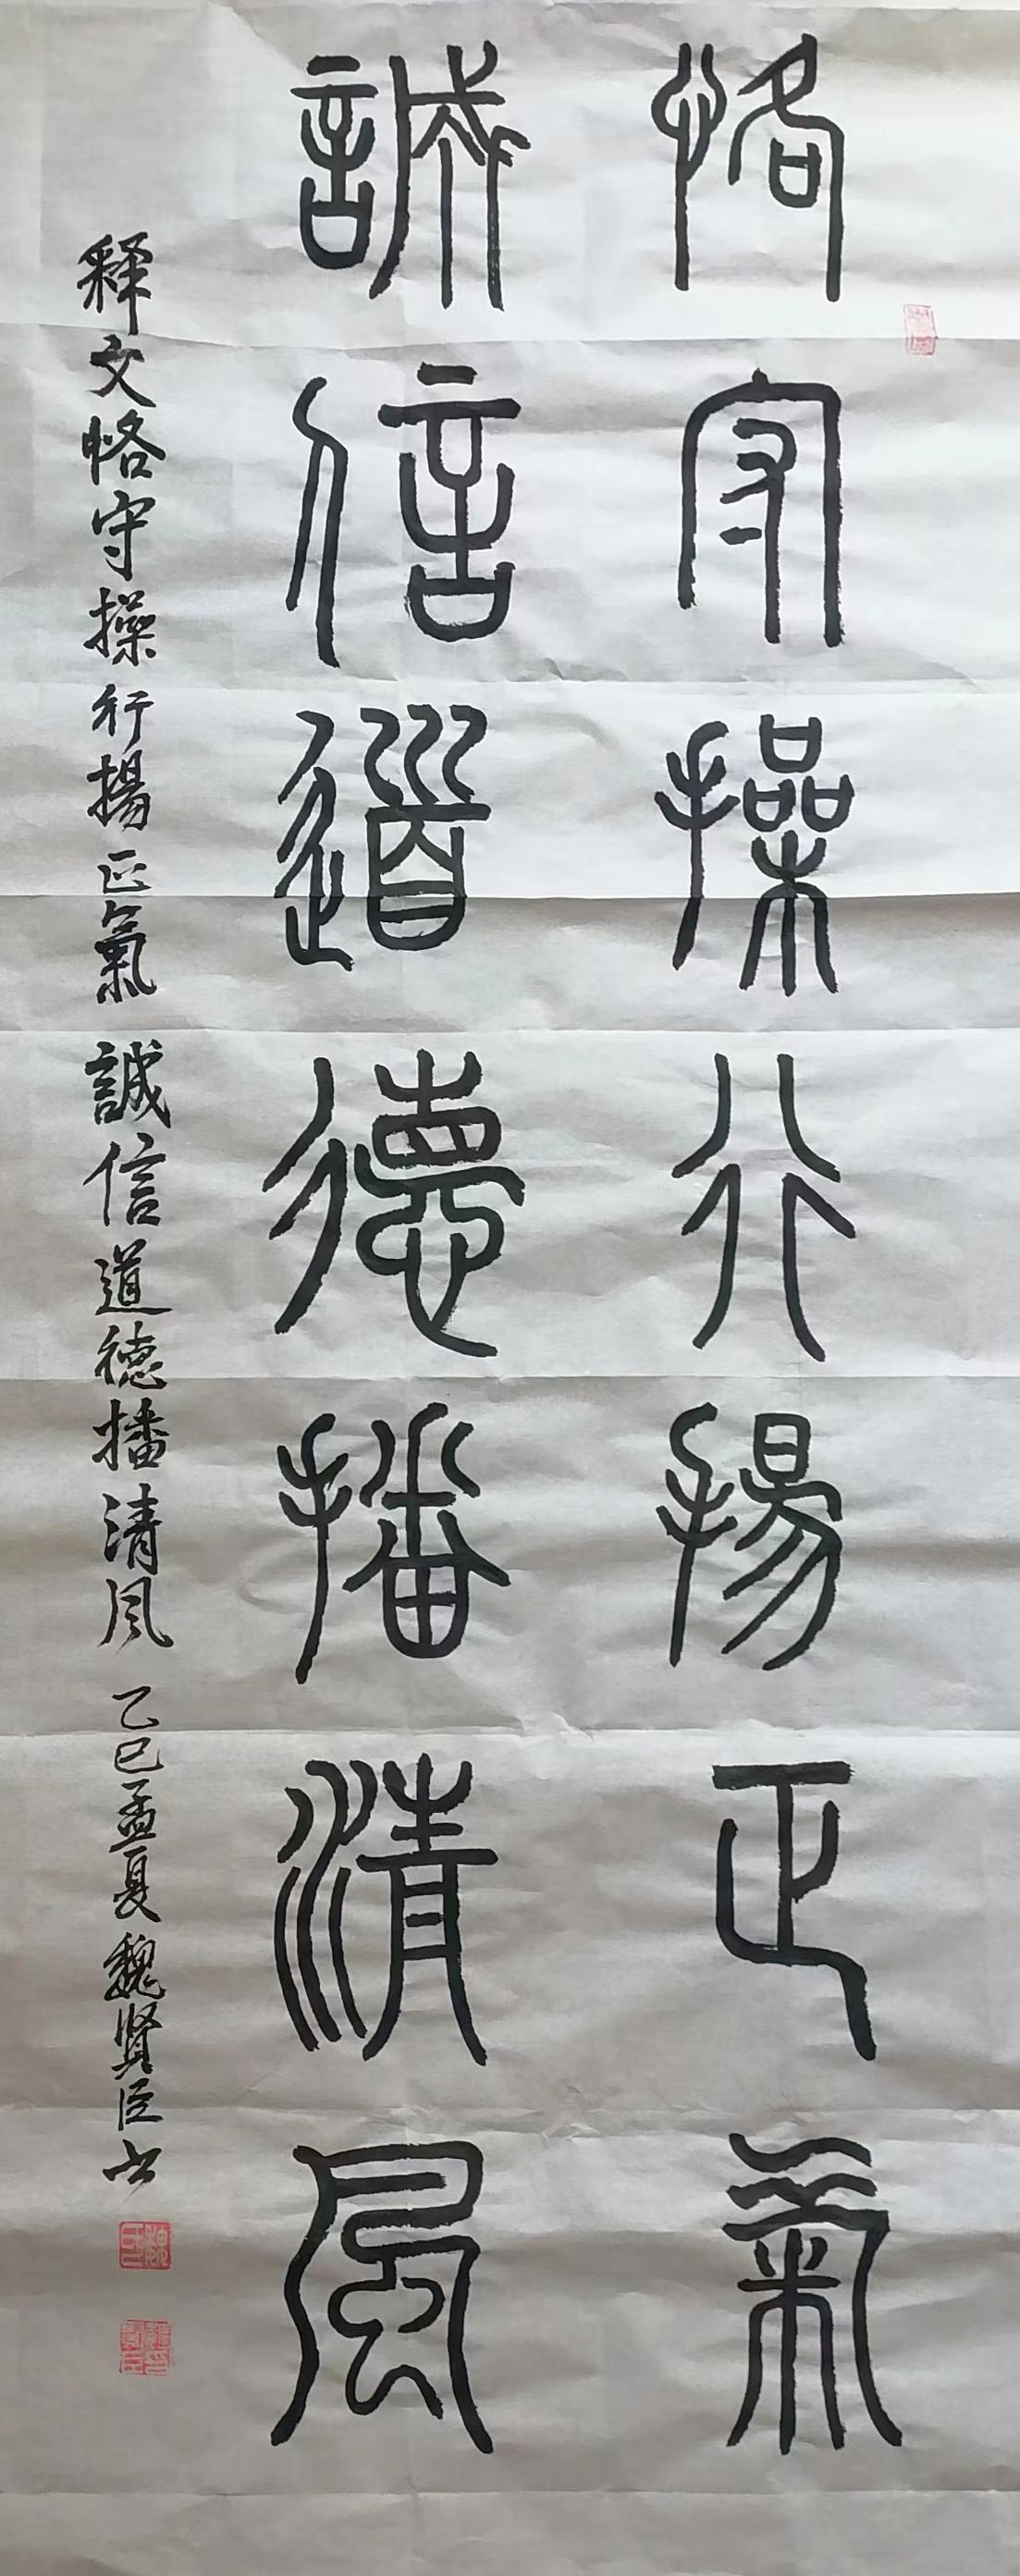 恪守操行揚正氣
誠信道德播清風
释文恪守操行揚正氣 誠信道德播清风 乙巳孟夏魏賢臣书